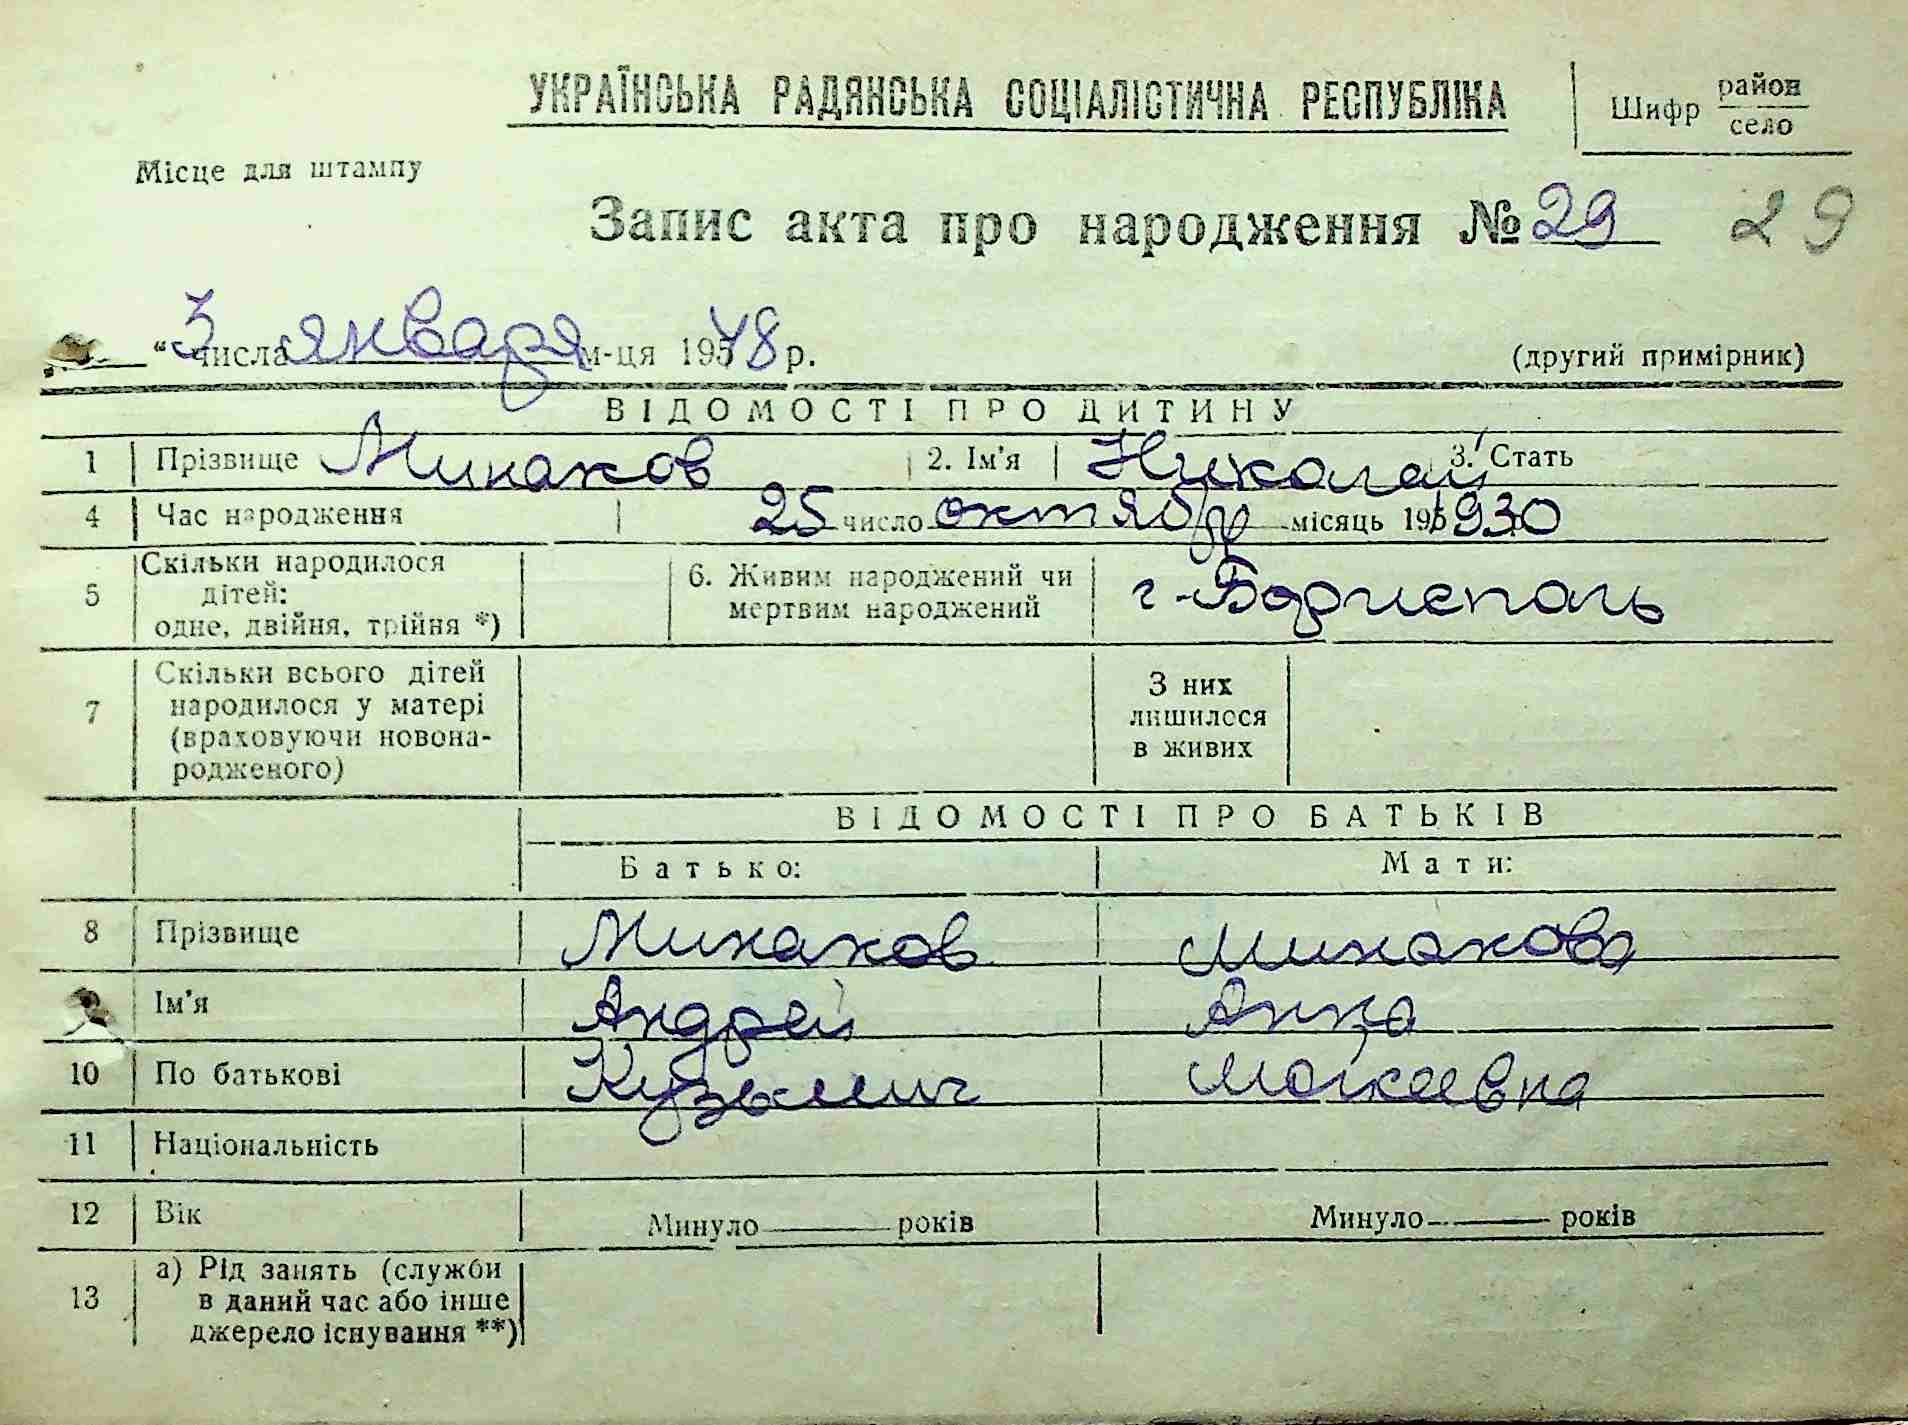 УКРАЇНСЬКА РАДЯНСЬКА СОЦІАЛІСТИЧНА РЕСПУБЛІКА
Шифр район
село
Місце для штампу
Запис акта про народження № 29 29
"3 числа января м-ця 1948 р. (другий примірник)
ВІДОМОСТІ ПРО ДИТИНУ
1 Прізвище Минаков 2. Ім'я Николай 3. Стать
4 Час народження 25 число октября місяць 1930
5 Скільки народилося дітей: одне, двійня, трійня *) 6. Живим народжений чи мертвим народжений г-Борисполь
7 Скільки всього дітей народилося у матері (враховуючи новона-родженого) З них лишилося в живих
ВІДОМОСТІ ПРО БАТЬКІВ
Батько: Мати:
8 Прізвище Минаков Минакова
9 Ім'я Андрей Анна
10 По батькові Кузьмич Мокеевна
11 Національність
12 Вік Минуло років Минуло років
13 а) Рід занять (служби в даний час або інше джерело існування **)